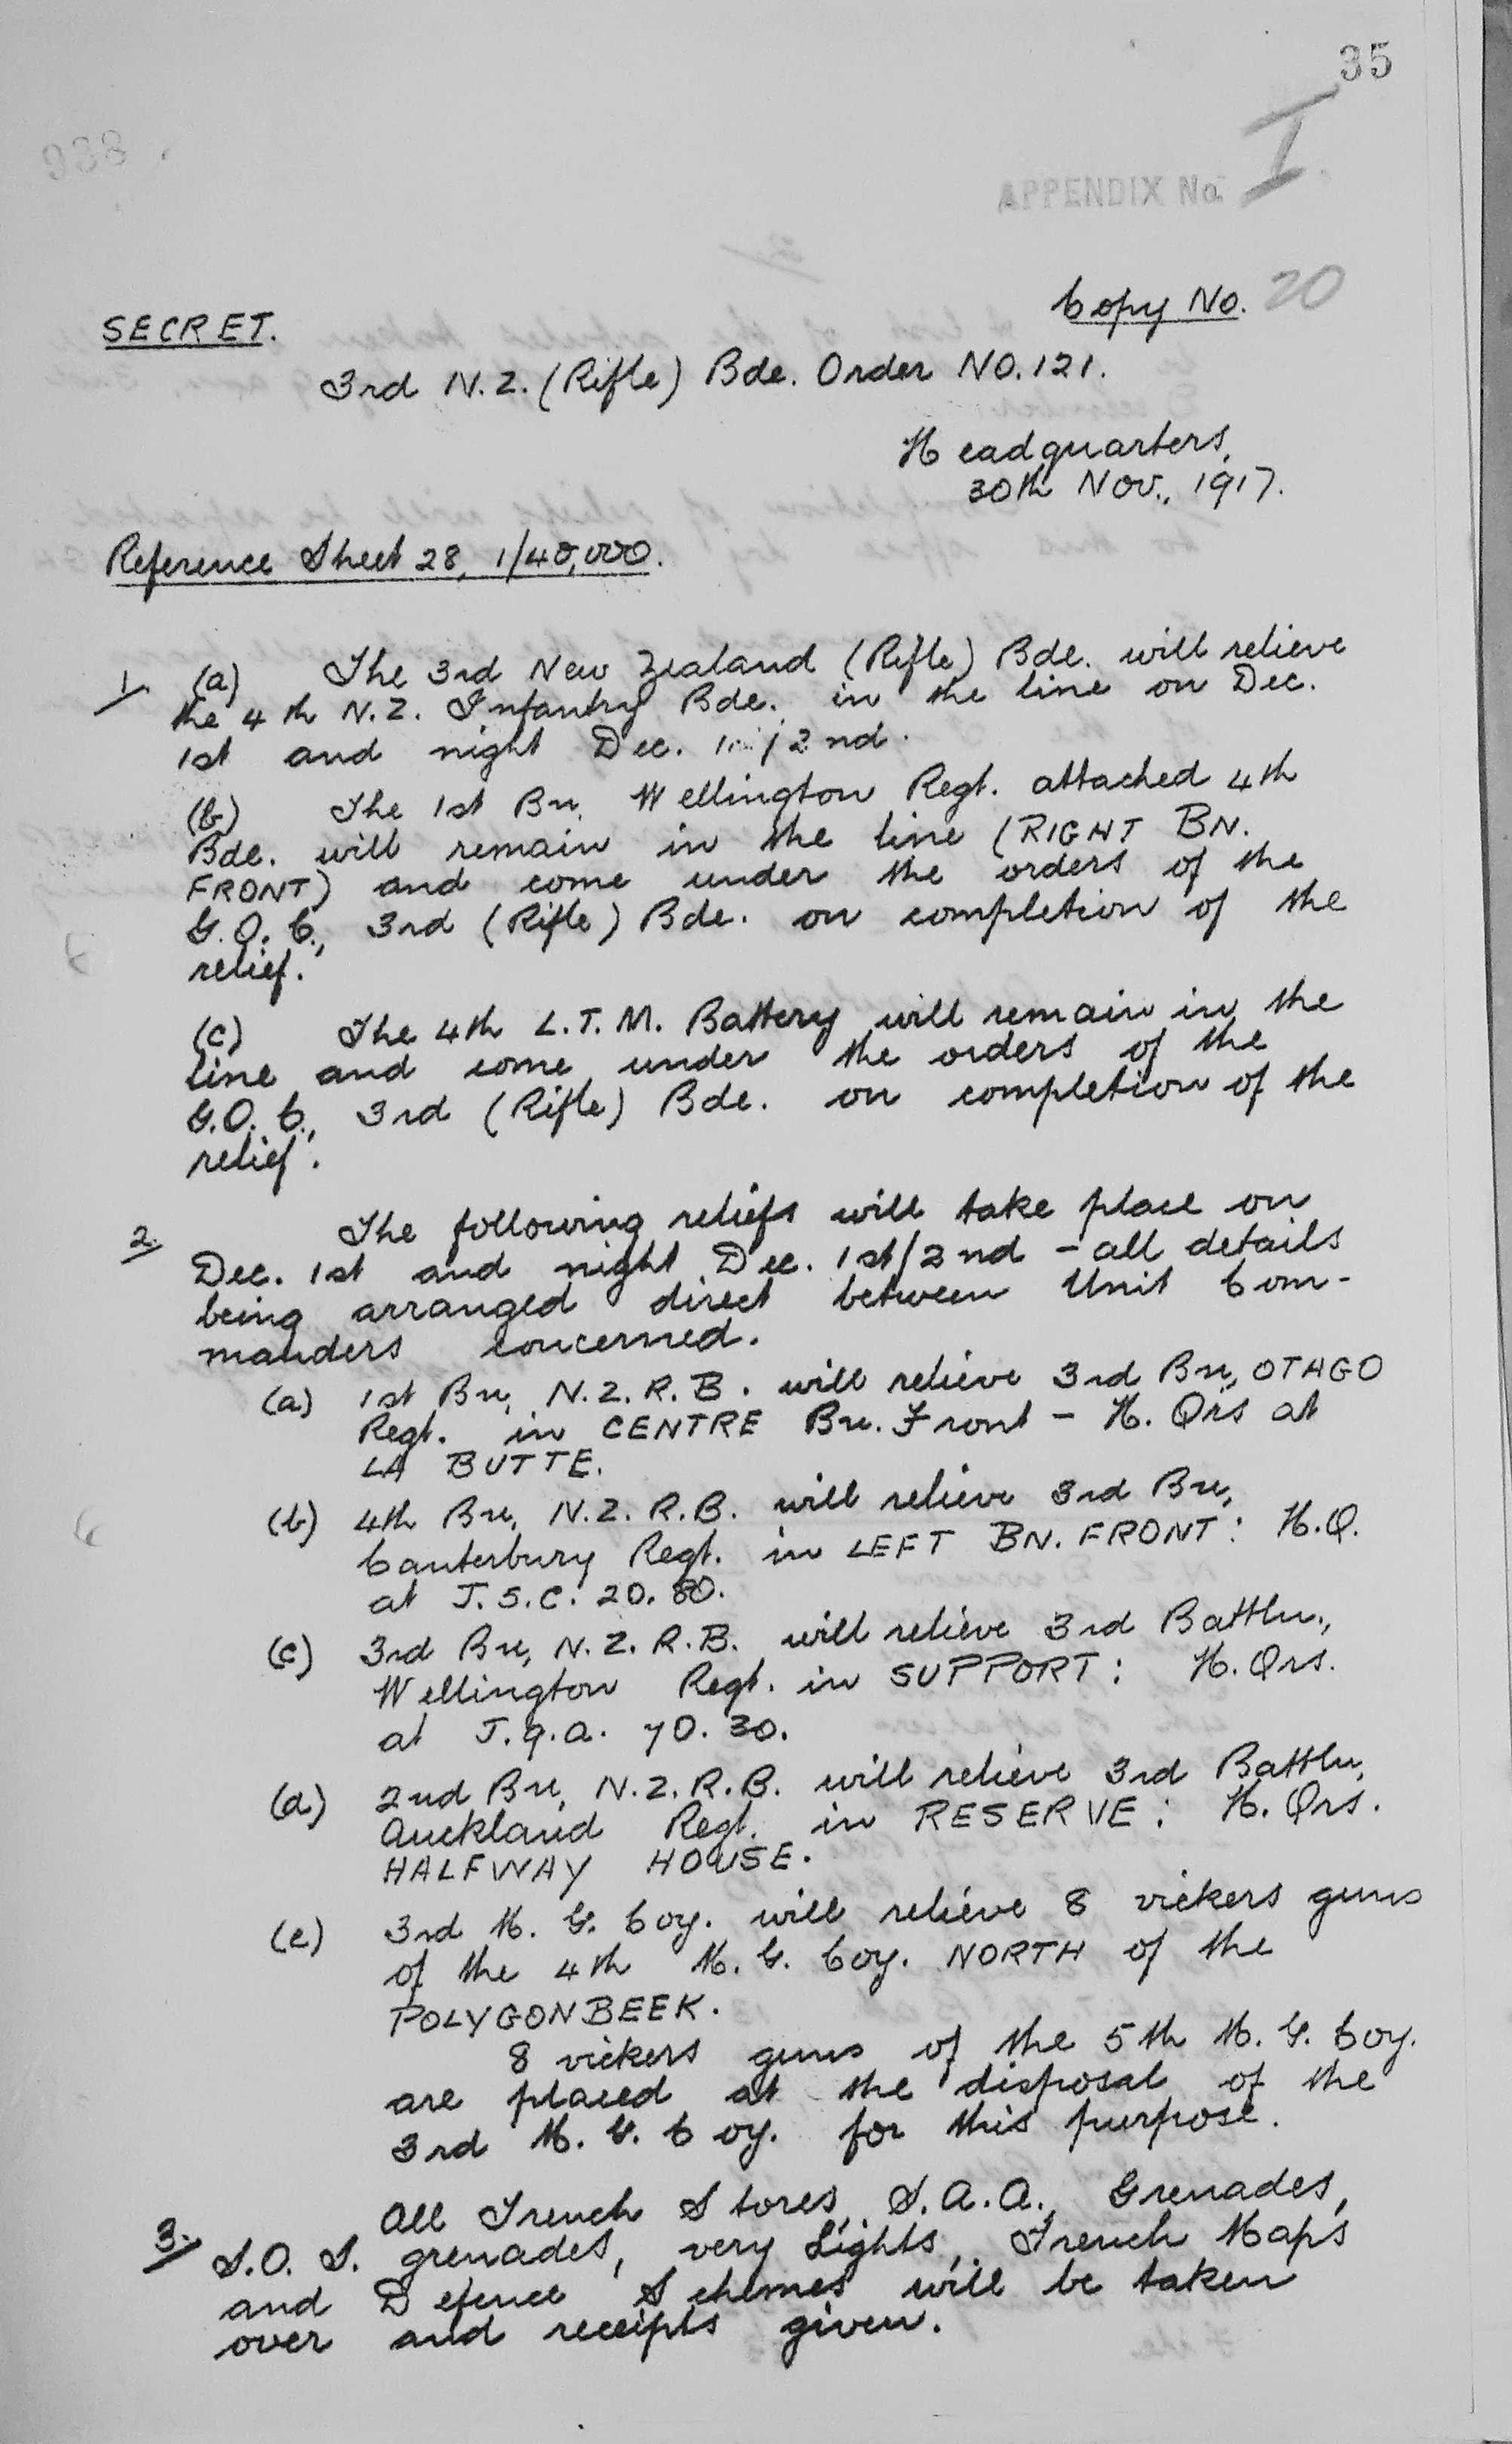 35
938.
APPENDIX No. I.
Copy No. 20
SECRET.
3rd N.Z. (Rifle) Bde. Order NO. 121.
Headquarters,
30th Nov., 1917.
Reference Sheet 28, 1/40,000.
1. (a) The 3rd New Zealand (Rifle) Bde. will relieve
the 4th N.Z. Infantry Bde. in the line on Dec.
1st and night Dec. 1st/2nd.
(b) The 1st Bn, Wellington Regt. attached 4th
Bde. will remain in the line (RIGHT BN.
FRONT) and come under the orders of the
G.O.C., 3rd (Rifle) Bde. on completion of the
relief.
(c) The 4th L.T.M. Battery will remain in the
line and come under the orders of the
G.O.C., 3rd (Rifle) Bde. on completion of the
relief.
2. The following reliefs will take place on
Dec. 1st and night Dec. 1st/2nd - all details
being arranged direct between Unit Com-
manders concerned.
(a) 1st Bn, N.Z.R.B. will relieve 3rd Bn, OTAGO
Regt. in CENTRE Bn. Front - H. Qrs at
LA BUTTE.
(b) 4th Bn, N.Z.R.B. will relieve 3rd Bn,
Canterbury Regt. in LEFT BN. FRONT: H.Q.
at J.5.C. 20.80.
(c) 3rd Bn, N.Z.R.B. will relieve 3rd Battln.,
Wellington Regt. in SUPPORT: H. Qrs.
at J.9.a. 70.30.
(d) 2nd Bn, N.Z.R.B. will relieve 3rd Battln,
Auckland Regt. in RESERVE: H. Qrs.
HALFWAY HOUSE.
(e) 3rd M.G. Coy. will relieve 8 vickers guns
of the 4th M.G. Coy. NORTH of the
POLYGONBEEK.
8 vickers guns of the 5th M.G. Coy.
are placed at the disposal of the
3rd M.G. Coy. for this purpose.
3. All Trench Stores, S.A.A., Grenades,
S.O.S. grenades, very Lights, Trench Maps
and Defence Schemes will be taken
over and receipts given.